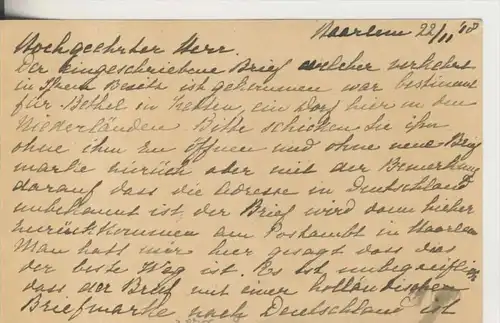 Haarlem 22/11 '18
Hochgeehrter Herr.
Der eingeschriebene Brief welcher verkehrt
in Ihrem Besitz ist gekommen war bestimmt
für Bethel in Hetten, ein Dorf hier in den
Niederländen. Bitte schicken Sie ihn
ohne ihm zu öffnen und ohne neue Brief
marke zurück aber mit der Bemerkung
darauf dass die Adresse in Deutschland
unbekannt ist, der Brief wird dann hieher
zurück kommen am Postambt in Haarlem
Man hatt mir hier gesagt dass das
der beste Weg ist. Es ist unbegreiflich
dass der Brief mit einer holländischen
Briefmarke nach Deutschland ist